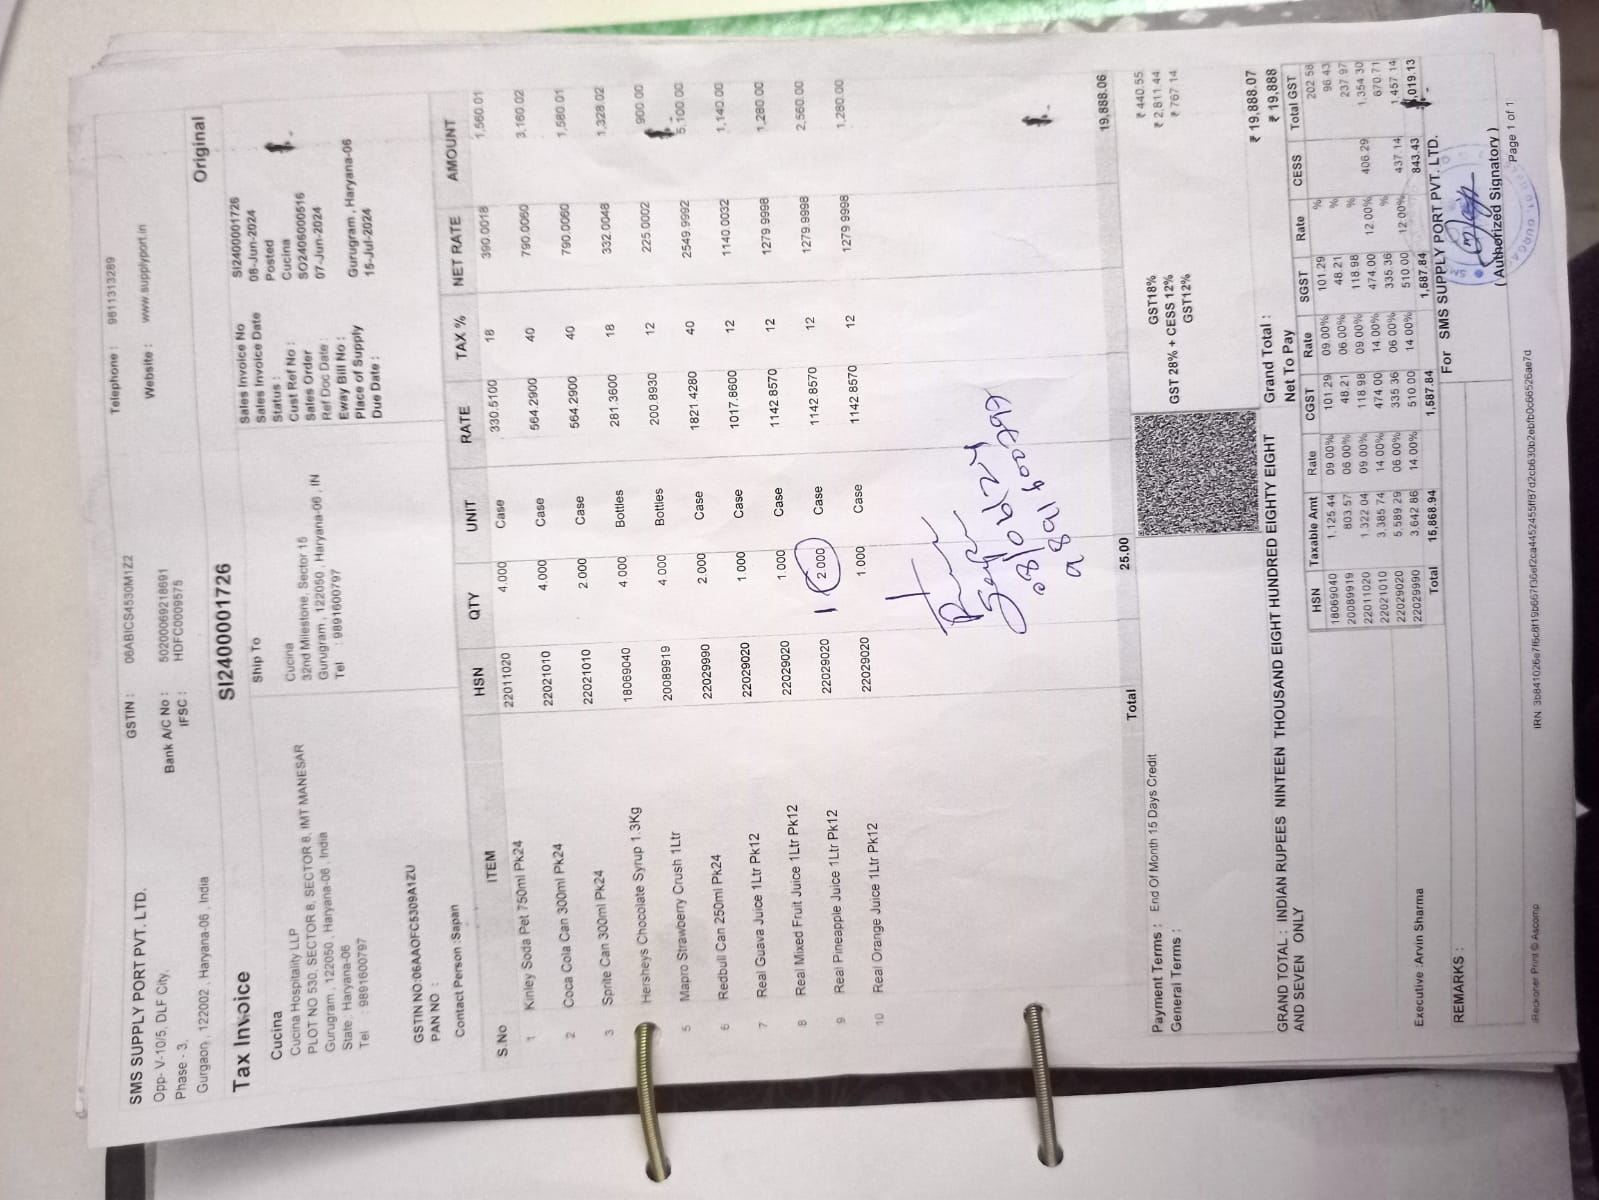 SMS SUPPLY PORT PVT. LTD.
Opp- V-10/5, DLF City,
Phase - 3,
Gurgaon , 122002 , Haryana-06 , India
GSTIN : 06ABICS4530M1Z2
Bank A/C No : 50200069218691
IFSC : HDFC0009575
Telephone : 9811313289
Website : www.supplyport.in
Tax Invoice SI2400001726 Original
Cucina
Cucina Hospitality LLP
PLOT NO 530, SECTOR 8, SECTOR 8, IMT MANESAR
Gurugram , 122050 , Haryana-06 , India
State : Haryana-06
Tel : 9891600797
GSTIN NO:06AAOFC5309A1ZU
PAN NO :
Contact Person :Sapan
Ship To
Cucina
32nd Milestone, Sector 15
Gurugram , 122050 , Haryana-06 , IN
Tel : 9891600797
Sales Invoice No SI2400001726
Sales Invoice Date 08-Jun-2024
Status : Posted
Cust Ref No : Cucina
Sales Order SO240600516
Ref Doc Date : 07-Jun-2024
Eway Bill No :
Place of Supply Gurugram , Haryana-06
Due Date : 15-Jul-2024
S.No ITEM HSN QTY UNIT RATE TAX % NET RATE AMOUNT
1 Kinley Soda Pet 750ml Pk24 22011020 4.000 Case 330.5100 18 390.0018 1,560.01
2 Coca Cola Can 300ml Pk24 22021010 4.000 Case 564.2900 40 790.0060 3,160.02
3 Sprite Can 300ml Pk24 22021010 2.000 Case 564.2900 40 790.0060 1,580.01
Hersheys Chocolate Syrup 1.3Kg 18069040 4.000 Bottles 281.3600 18 332.0048 1,328.02
5 Mapro Strawberry Crush 1Ltr 20089919 4.000 Bottles 200.8930 12 225.0002 900.00
6 Redbull Can 250ml Pk24 22029990 2.000 Case 1821.4280 40 2549.9992 5,100.00
7 Real Guava Juice 1Ltr Pk12 22029020 1.000 Case 1017.8600 12 1140.0032 1,140.00
8 Real Mixed Fruit Juice 1Ltr Pk12 22029020 1.000 Case 1142.8570 12 1279.9998 1,280.00
9 Real Pineapple Juice 1Ltr Pk12 22029020 2.000 Case 1142.8570 12 1279.9998 2,560.00
10 Real Orange Juice 1Ltr Pk12 22029020 1.000 Case 1142.8570 12 1279.9998 1,280.00
08/06/24
9891600797
Total 25.00 19,888.06
Payment Terms : End Of Month 15 Days Credit
General Terms :
GST18% ₹ 440.55
GST 28% + CESS 12% ₹ 2,811.44
GST12% ₹ 767.14
GRAND TOTAL : INDIAN RUPEES NINTEEN THOUSAND EIGHT HUNDRED EIGHTY EIGHT
AND SEVEN ONLY
Grand Total : ₹ 19,888.07
Net To Pay ₹ 19,888
HSN Taxable Amt Rate CGST Rate SGST Rate CESS Total GST
18069040 1,125.44 09.00% 101.29 09.00% 101.29 % 202.58
20089919 803.57 06.00% 48.21 06.00% 48.21 % 96.43
22011020 1,322.04 09.00% 118.98 09.00% 118.98 % 237.97
22021010 3,385.74 14.00% 474.00 14.00% 474.00 12.00% 406.29 1,354.30
22029020 5,589.29 06.00% 335.36 06.00% 335.36 % 670.71
22029990 3,642.86 14.00% 510.00 14.00% 510.00 12.00% 437.14 1,457.14
Total 15,868.94 1,587.84 1,587.84 843.43 ,019.13
Executive :Arvin Sharma
For SMS SUPPLY PORT PVT. LTD.
REMARKS :
( Authorized Signatory )
iReckoner Print © Ascomp
Page 1 of 1